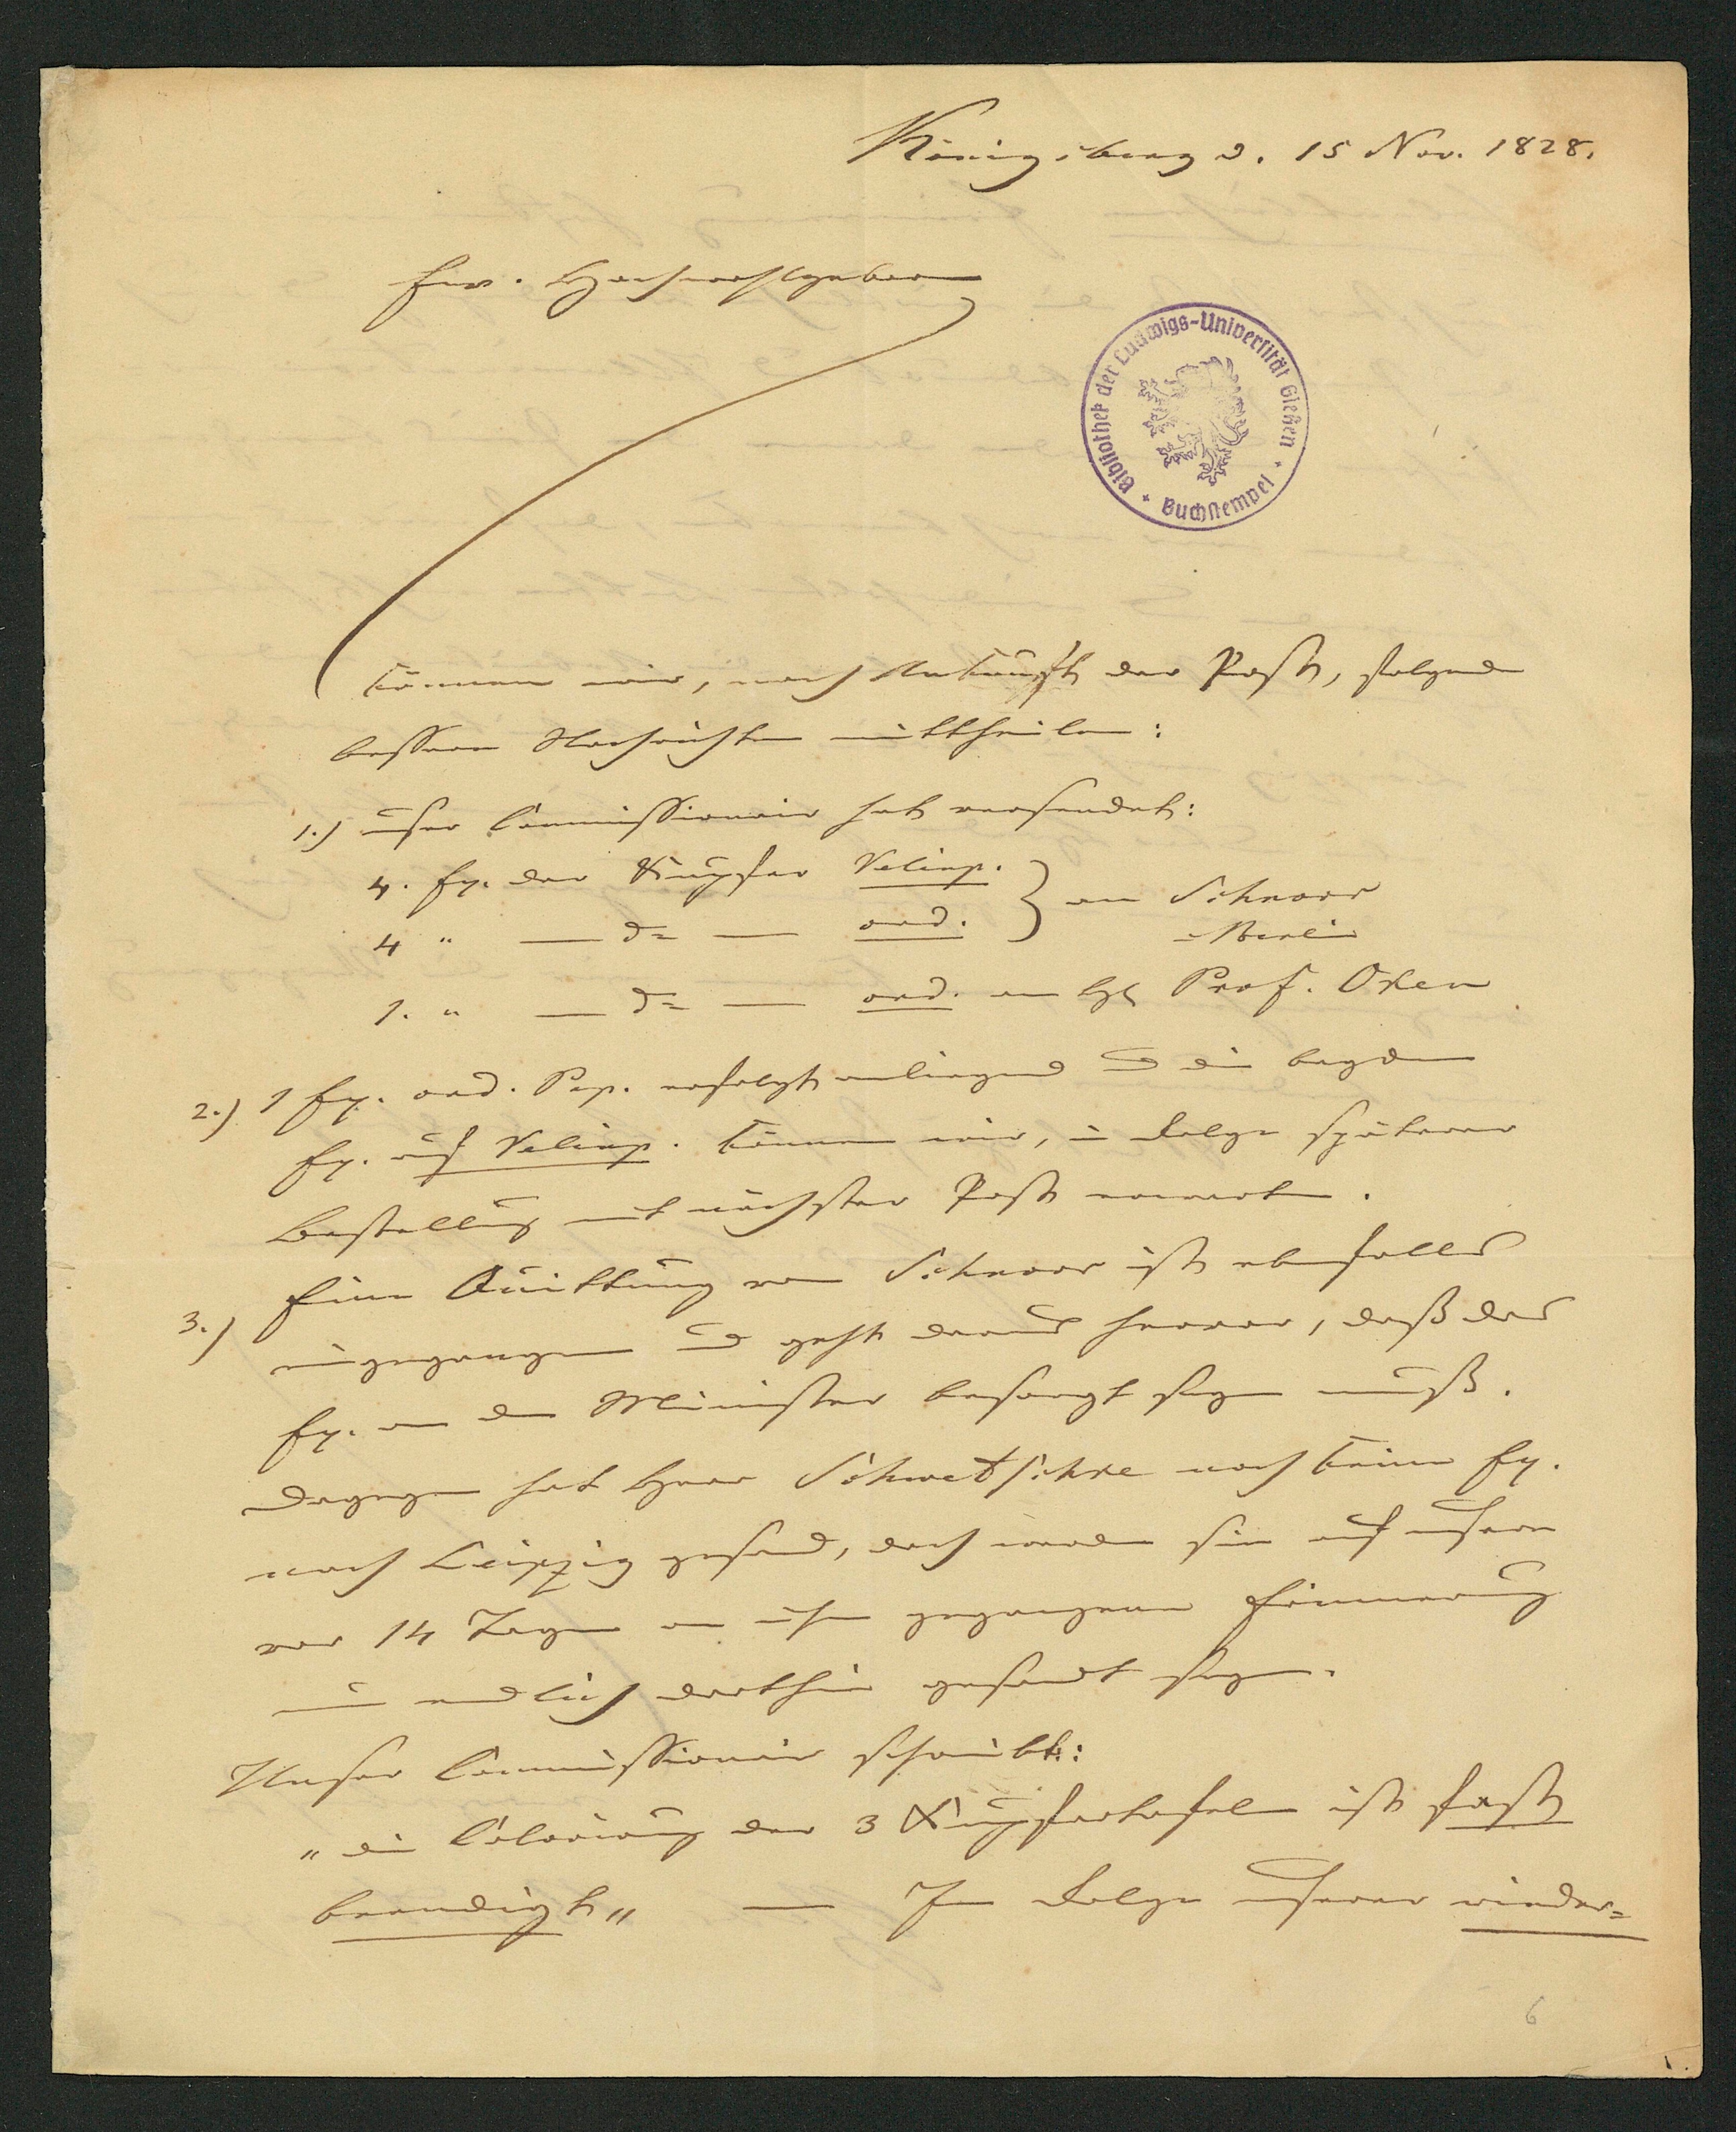 Königsberg d. 15 Nov. 1828.
Ew. Hochwohlgeboren
Bibliothek der Ludwigs-Universität Gießen
Buchstempel
können wir, nach Ankunft der Post, folgende
bessere Nachrichten mittheilen:
1.) unser Commissionair hat versendet:
4. Ex. der Kupfer Velinp. } an Schnorr
4 " — do — ord. Berlin
1. " — do — ord. an H Prof. Oken
2.) 1 Ex. ord. Pap. erfolgt anliegend u die beyden
Ex. auf Velinp. können wir, in Folge späterer
Bestellung mit nächster Post erwarten.
3.) Eine Quittung von Schnorr ist ebenfalls
eingegangen u geht daraus hervor, daß das
Ex. an den Minister besorgt seyn muß.
Dagegen hat Herr Schwetschke noch keine Ex.
nach Leipzig gesand, doch werden sie auf unsere
vor 14 Tagen an ihn gegangene Erinnerung
nun endlich dorthin gesandt seyn.
Unser Commissionair schreibt:
„die Colorirung der 3 Kupfertafeln ist fast
beendigt„ — In Folge unserer wieder-
6
1.